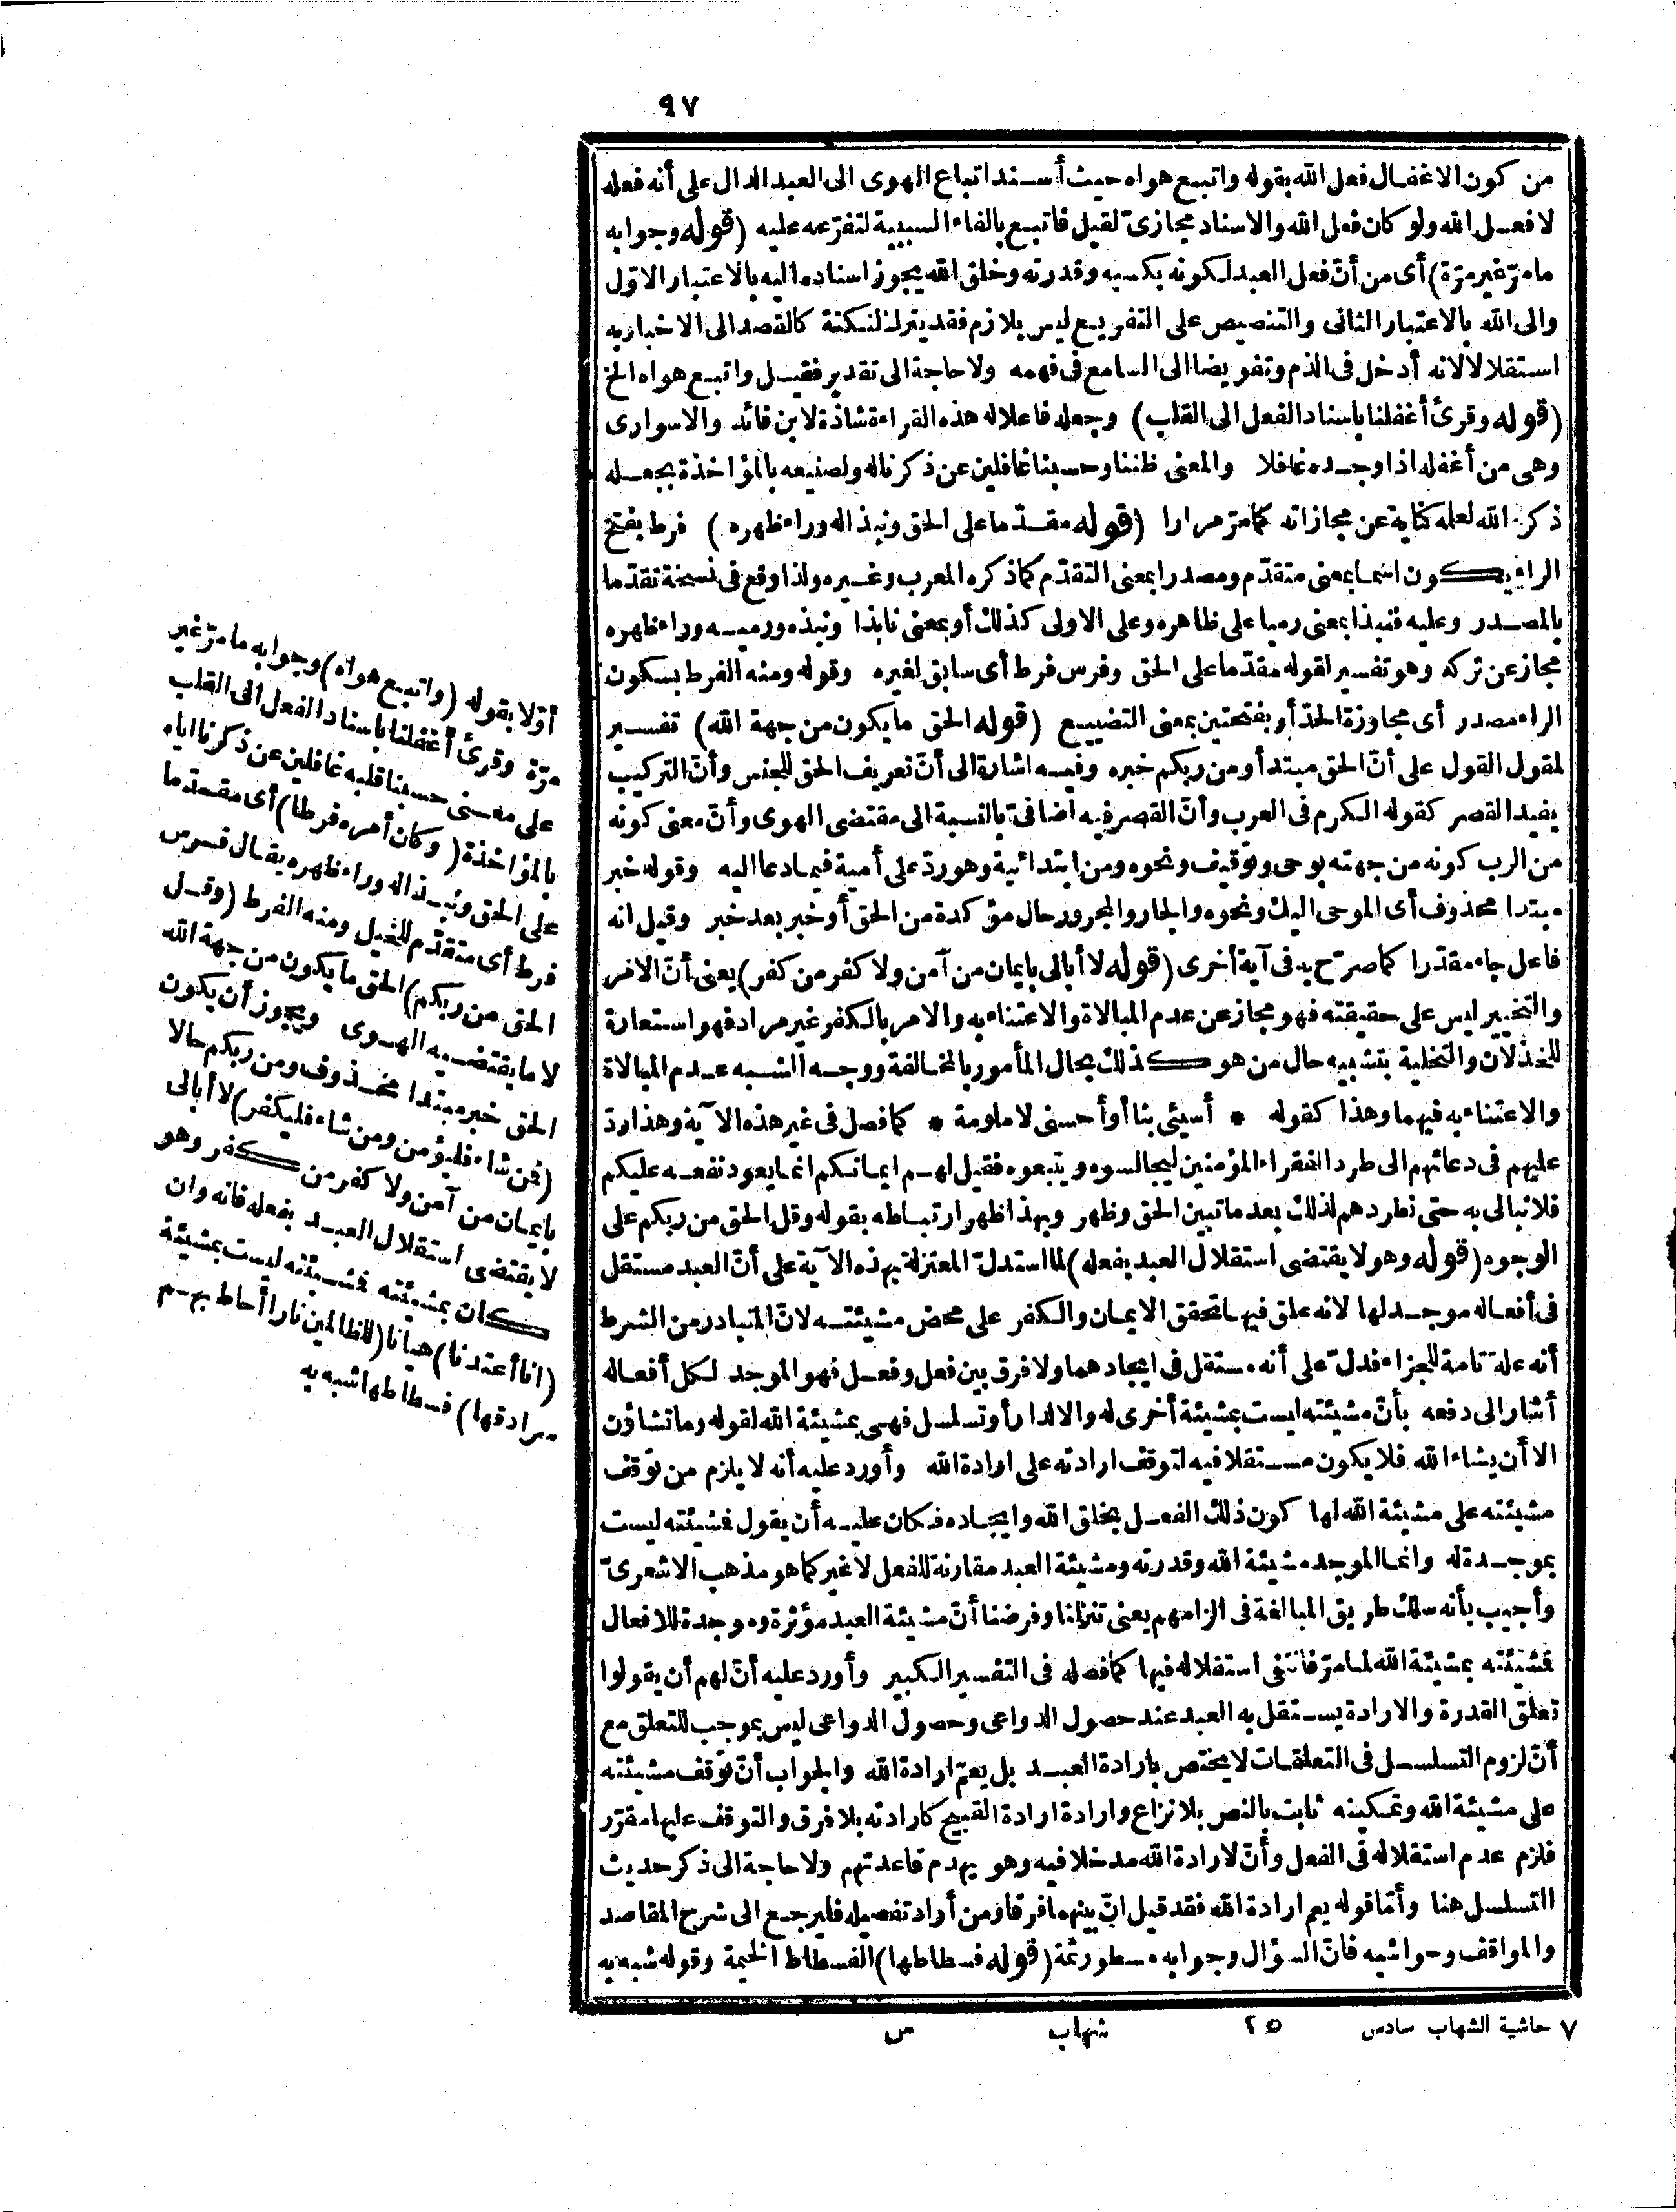 ٩٧
من كون الاغفال فعل الله بقوله واتبع هواه حيث أسند اتباع الهوى الى العبد الدال على أنه فعله
لا فعل الله ولو كان فعل الله والاسناد مجازىّ لقيل فاتبع بالفاء السببية لتفرّعه عليه (قوله وجوابه
ما مرّ غير مرّة) أى من أنّ فعل العبد لكونه بكسبه وقدرته وخلق الله يجوز اسناده اليه بالاعتبار الاوّل
والى الله بالاعتبار الثانى والتنصيص على التفريع ليس بلازم فقد يترك لنكتة كالقصد الى الاخبار به
استقلالا لانه أدخل فى الذم وتفويضا الى السامع فى فهمه ولا حاجة الى تقدير فقيل واتبع هواه الخ
(قوله وقرئ أغفلنا باسناد الفعل الى القلب) وجعله فاعلا له هذه القراءة شاذة لابن فائد والاسوارى
وهى من أغفله اذا وجده غافلا والمعنى ظننا وحسبنا غافلين عن ذكرنا له ولصنيعه بالمؤاخذة بجعله
ذكر الله لعله كناية عن مجازاته كما مرّ مرارا (قوله مقدّما على الحق ونبذا له وراء ظهره) فرط بفتح
الراء يكون اسما بمعنى متقدّم ومصدرا بمعنى التقدّم كما ذكره المعرب وغيره ولذا وقع فى نسخة تقدّما
بالمصدر وعليه فنبذا بمعنى رميا على ظاهره وعلى الاولى كذلك أو بمعنى نابذا ونبذه ورميه وراء ظهره
مجاز عن تركه وهو تفسير لقوله مقدّما على الحق وفرس فرط أى سابق لغيره وقوله ومنه الفرط بسكون
الراء مصدر أى مجاوزة الحدّ أو بفتحتين بمعنى التضييع (قوله الحق ما يكون من جهة الله) تفسير
لمقول القول على أنّ الحق مبتدأ ومن ربكم خبره وفيه اشارة الى أنّ تعريف الحق للجنس وأنّ التركيب
يفيد القصر كقوله الكرم فى العرب وأنّ القصر فيه اضافىّ بالنسبة الى مقتضى الهوى وأنّ معنى كونه
من الرب كونه من جهته بوحى وتوقيف ونحوه ومن ابتدائية وهو ردّ على أمية فيما دعا اليه وقوله خبر
مبتدا محذوف أى الموحى اليك ونحوه والجار والمجرور حال مؤكدة من الحق أو خبر بعد خبر وقيل انه
فاعل جاء مقدّرا كما صرّح به فى آية أخرى (قوله لا أبالى بايمان من آمن ولا كفر من كفر) يعنى أنّ الامر
والتخيير ليس على حقيقته فهو مجاز عن عدم المبالاة والاعتناء به والامر بالكفر غير مراد فهو استعارة
للخذلان والتخلية بتشبيه حال من هو كذلك بحال المأمور بالمخالفة ووجه الشبه عدم المبالاة
والاعتناء به فيهما وهذا كقوله * أسيئى بنا أو أحسنى لا ملومة * كما فصل فى غير هذه الآية وهذا ردّ
عليهم فى دعائهم الى طرد الفقراء المؤمنين ليجالسوه ويتبعوه فقيل لهم ايمانكم انما يعود نفعه عليكم
فلا نبالى به حتى نطردهم لذلك بعد ما تبين الحق وظهر وبهذا ظهر ارتباطه بقوله وقل الحق من ربكم على
الوجوه (قوله وهو لا يقتضى استقلال العبد بفعله) لما استدلّ المعتزلة بهذه الآية على أنّ العبد مستقل
فى أفعاله موجد لها لانه علق فيها تحقق الايمان والكفر على محض مشيئته لانّ المتبادر من الشرط
أنه علة تامة للجزاء فدلّ على أنه مستقل فى ايجادهما ولا فرق بين فعل وفعل فهو الموجد لكل أفعاله
أشار الى دفعه بأنّ مشيئته ليست بمشيئة أخرى له والا لدار أو تسلسل فهى بمشيئة الله لقوله وما تشاؤن
الا أن يشاء الله فلا يكون مستقلا فيه لتوقف ارادته على ارادة الله وأورد عليه أنه لا يلزم من توقف
مشيئته على مشيئة الله لها كون ذلك الفعل بخلق الله وايجاده فكان عليه أن يقول فمشيئته ليست
بموجدة له وانما الموجد مشيئة الله وقدرته ومشيئة العبد مقارنة للفعل لا غير كما هو مذهب الاشعرىّ
وأجيب بأنه سلك طريق المبالغة فى الزامهم يعنى تنزلنا وفرضنا أنّ مشيئة العبد مؤثرة وموجدة للافعال
فمشيئته بمشيئة الله لما مرّ فانتفى استقلاله فيها كما فصله فى التفسير الكبير وأورد عليه أنّ لهم أن يقولوا
تعلق القدرة والارادة يستقل به العبد عند حصول الدواعى وحصول الدواعى ليس بموجب للتعلق مع
أنّ لزوم التسلسل فى التعلقات لا يختص بارادة العبد بل يعمّ ارادة الله والجواب أنّ توقف مشيئته
على مشيئة الله وتمكينه ثابت بالنص بلا نزاع وارادة ارادة القبيح كارادته بلا فرق والتوقف عليها مقرّر
فلزم عدم استقلاله فى الفعل وأنّ لارادة الله مدخلا فيه وهو يهدم قاعدتهم ولا حاجة الى ذكر حديث
التسلسل هنا وأمّا قوله يعم ارادة الله فقد قيل انّ بينهما فرقا ومن أراد تفصيله فليرجع الى شرح المقاصد
والمواقف وحواشيه فانّ السؤال وجوابه مسطور ثمة (قوله فسطاطها) الفسطاط الخيمة وقوله شبه به
أوّلا بقوله (واتبع هواه) وجوابه ما مرّ غير
مرّة وقرئ أغفلنا باسناد الفعل الى القلب
على معنى حسبنا قلبه غافلين عن ذكرنا اياه
بالمؤاخذة (وكان أمره فرطا) أى مقدّما
على الحق ونبذا له وراء ظهره يقال فرس
فرط أى متقدّم للخيل ومنه الفرط (وقل
الحق من ربكم) الحق ما يكون من جهة الله
لا ما يقتضيه الهوى ويجوز أن يكون
الحق خبر مبتدا محذوف ومن ربكم حالا
(فمن شاء فليؤمن ومن شاء فليكفر) لا أبالى
بايمان من آمن ولا كفر من كفر وهو
لا يقتضى استقلال العبد بفعله فانه وان
كان بمشيئته فمشيئته ليست بمشيئة
(انا أعتدنا) هيأنا (للظالمين نارا أحاط بهم
سرادقها) فسطاطها شبه به
٧ حاشية الشهاب سادس ٢٥ شهاب س